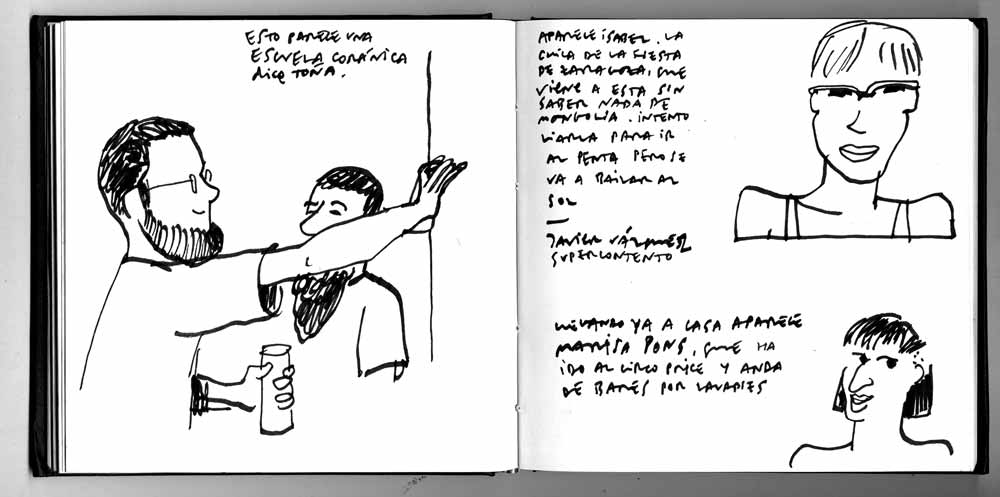 ESTO PARECE UNA
ESCUELA CORÁNICA
dice TOÑA.
APARECE ISABEL. LA
CHICA DE LA SIESTA
DE ZARAGOZA, QUE
VIENE A ESTA SIN
SABER NADA DE
MONGOLIA. INTENTO
LIARLA PARA IR
AL PENTA PERO SE
VA A BAILAR AL
SOL
—
JAVIER VÁZQUEZ
SUPERCONTENTO
LLEGANDO YA A CASA APARECE
MARISA PONS, QUE HA
IDO AL CIRCO PRICE Y ANDA
DE BARES POR LAVAPIES